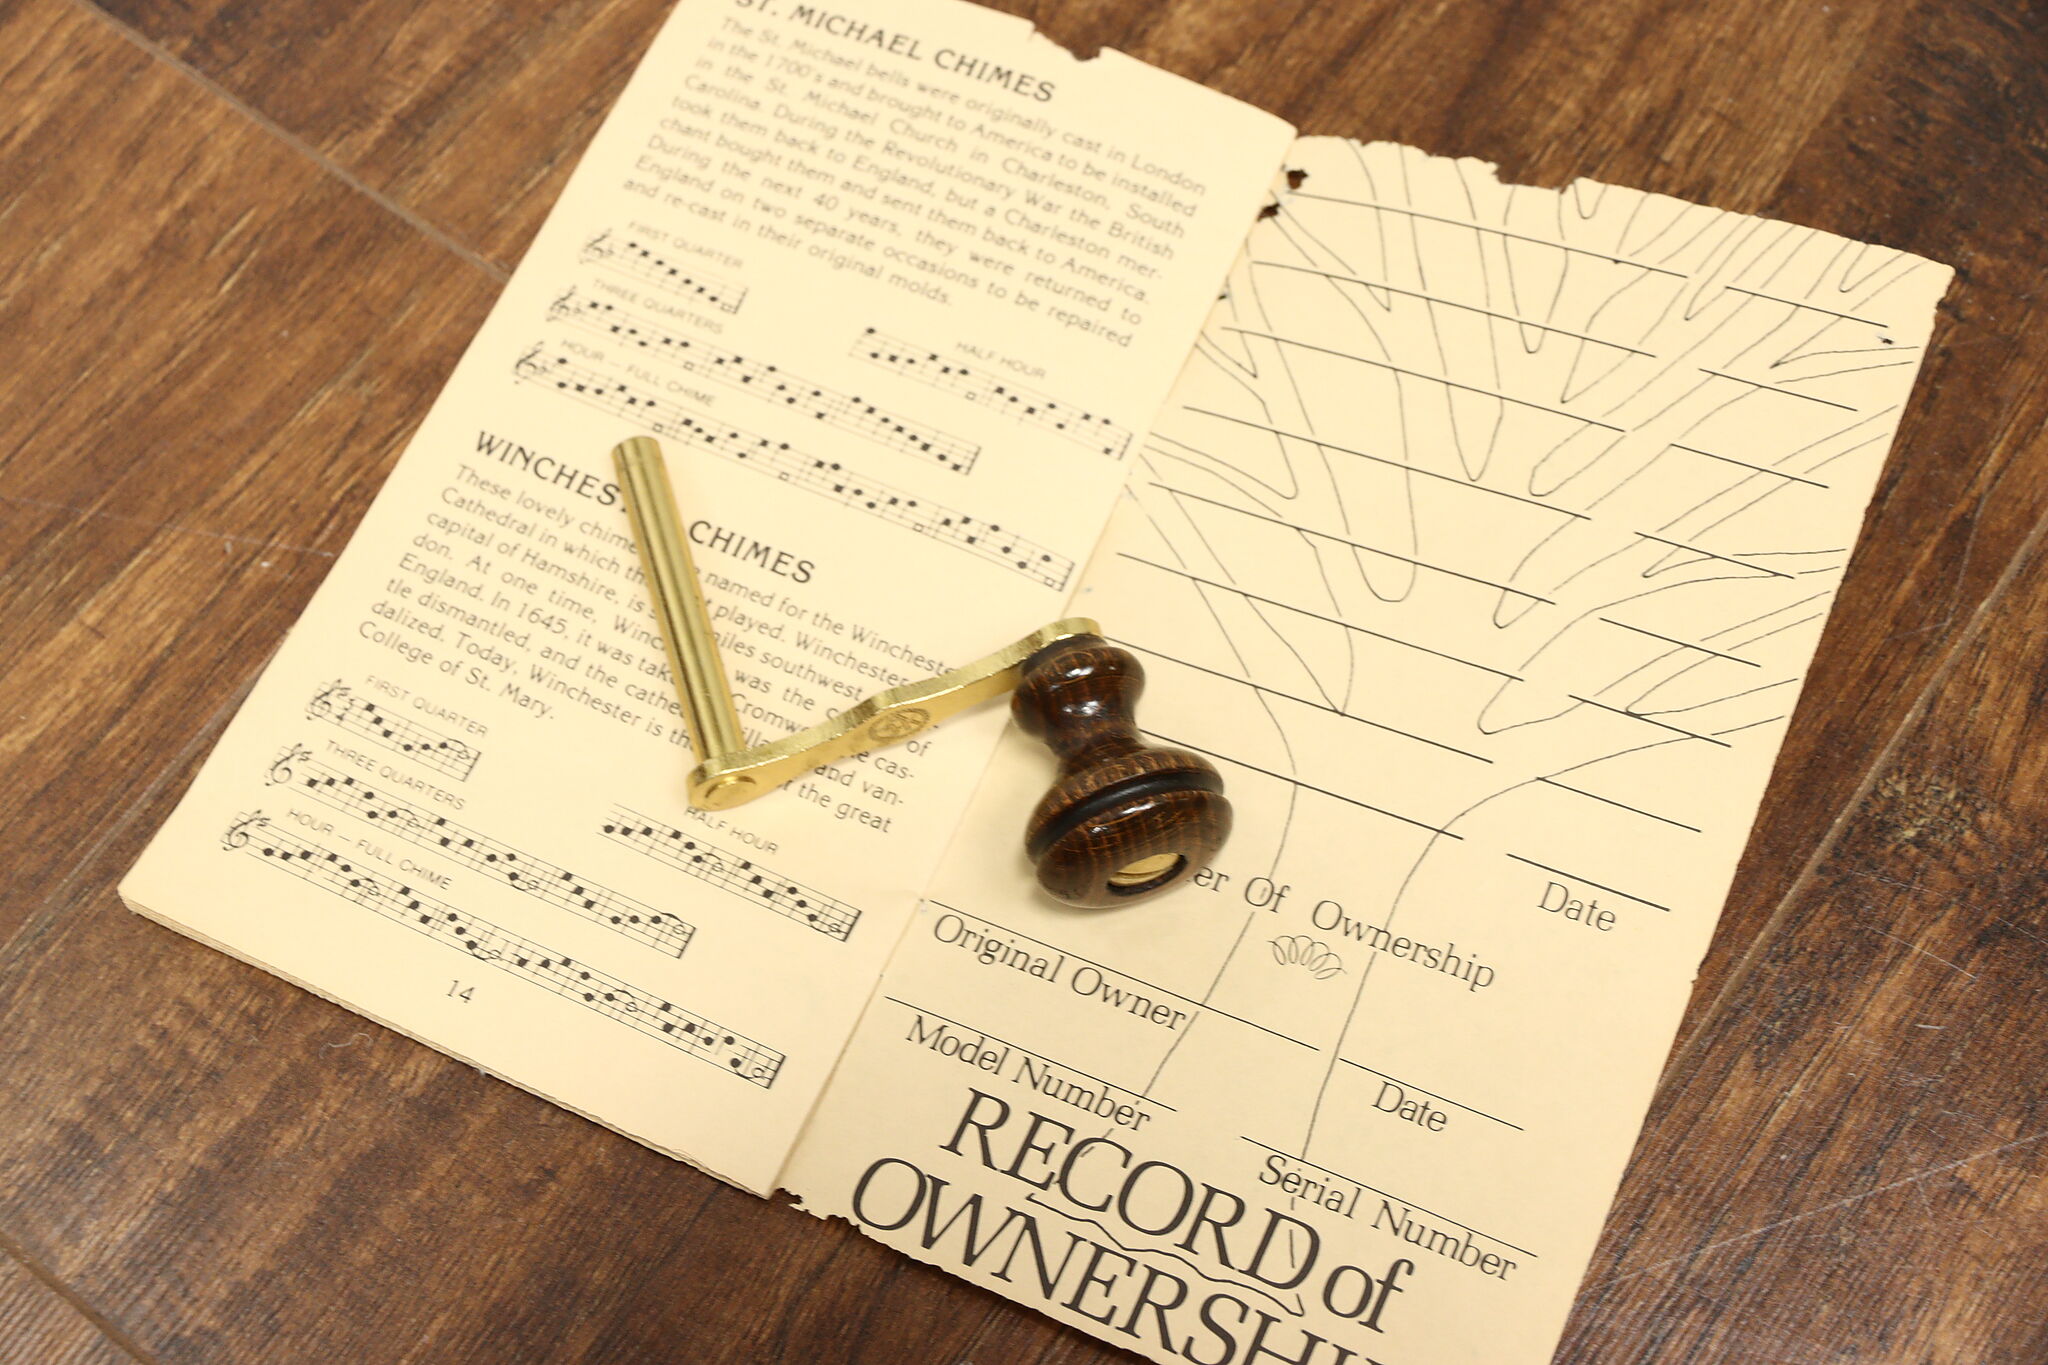 ST. MICHAEL CHIMES
The St. Michael bells were originally cast in London
in the 1700's and brought to America to be installed
in the St. Michael Church in Charleston, South
Carolina. During the Revolutionary War the British
took them back to England, but a Charleston mer-
chant bought them and sent them back to America.
During the next 40 years, they were returned to
England on two separate occasions to be repaired
and re-cast in their original molds.
FIRST QUARTER
HALF HOUR
THREE QUARTERS
HOUR — FULL CHIME
WINCHES CHIMES
These lovely chime named for the Winchester
Cathedral in which th played. Winchester
capital of Hamshire, is miles southwest
don. At one time, was the of
England. In 1645, it was Cromw cas-
tle dismantled, and the and van-
dalized. Today, Winchester is the great
College of St. Mary.
FIRST QUARTER
HALF HOUR
THREE QUARTERS
HOUR — FULL CHIME
14
Date
er Of Ownership
Original Owner
Date
Model Number
Serial Number
RECORD of
OWNERSHI